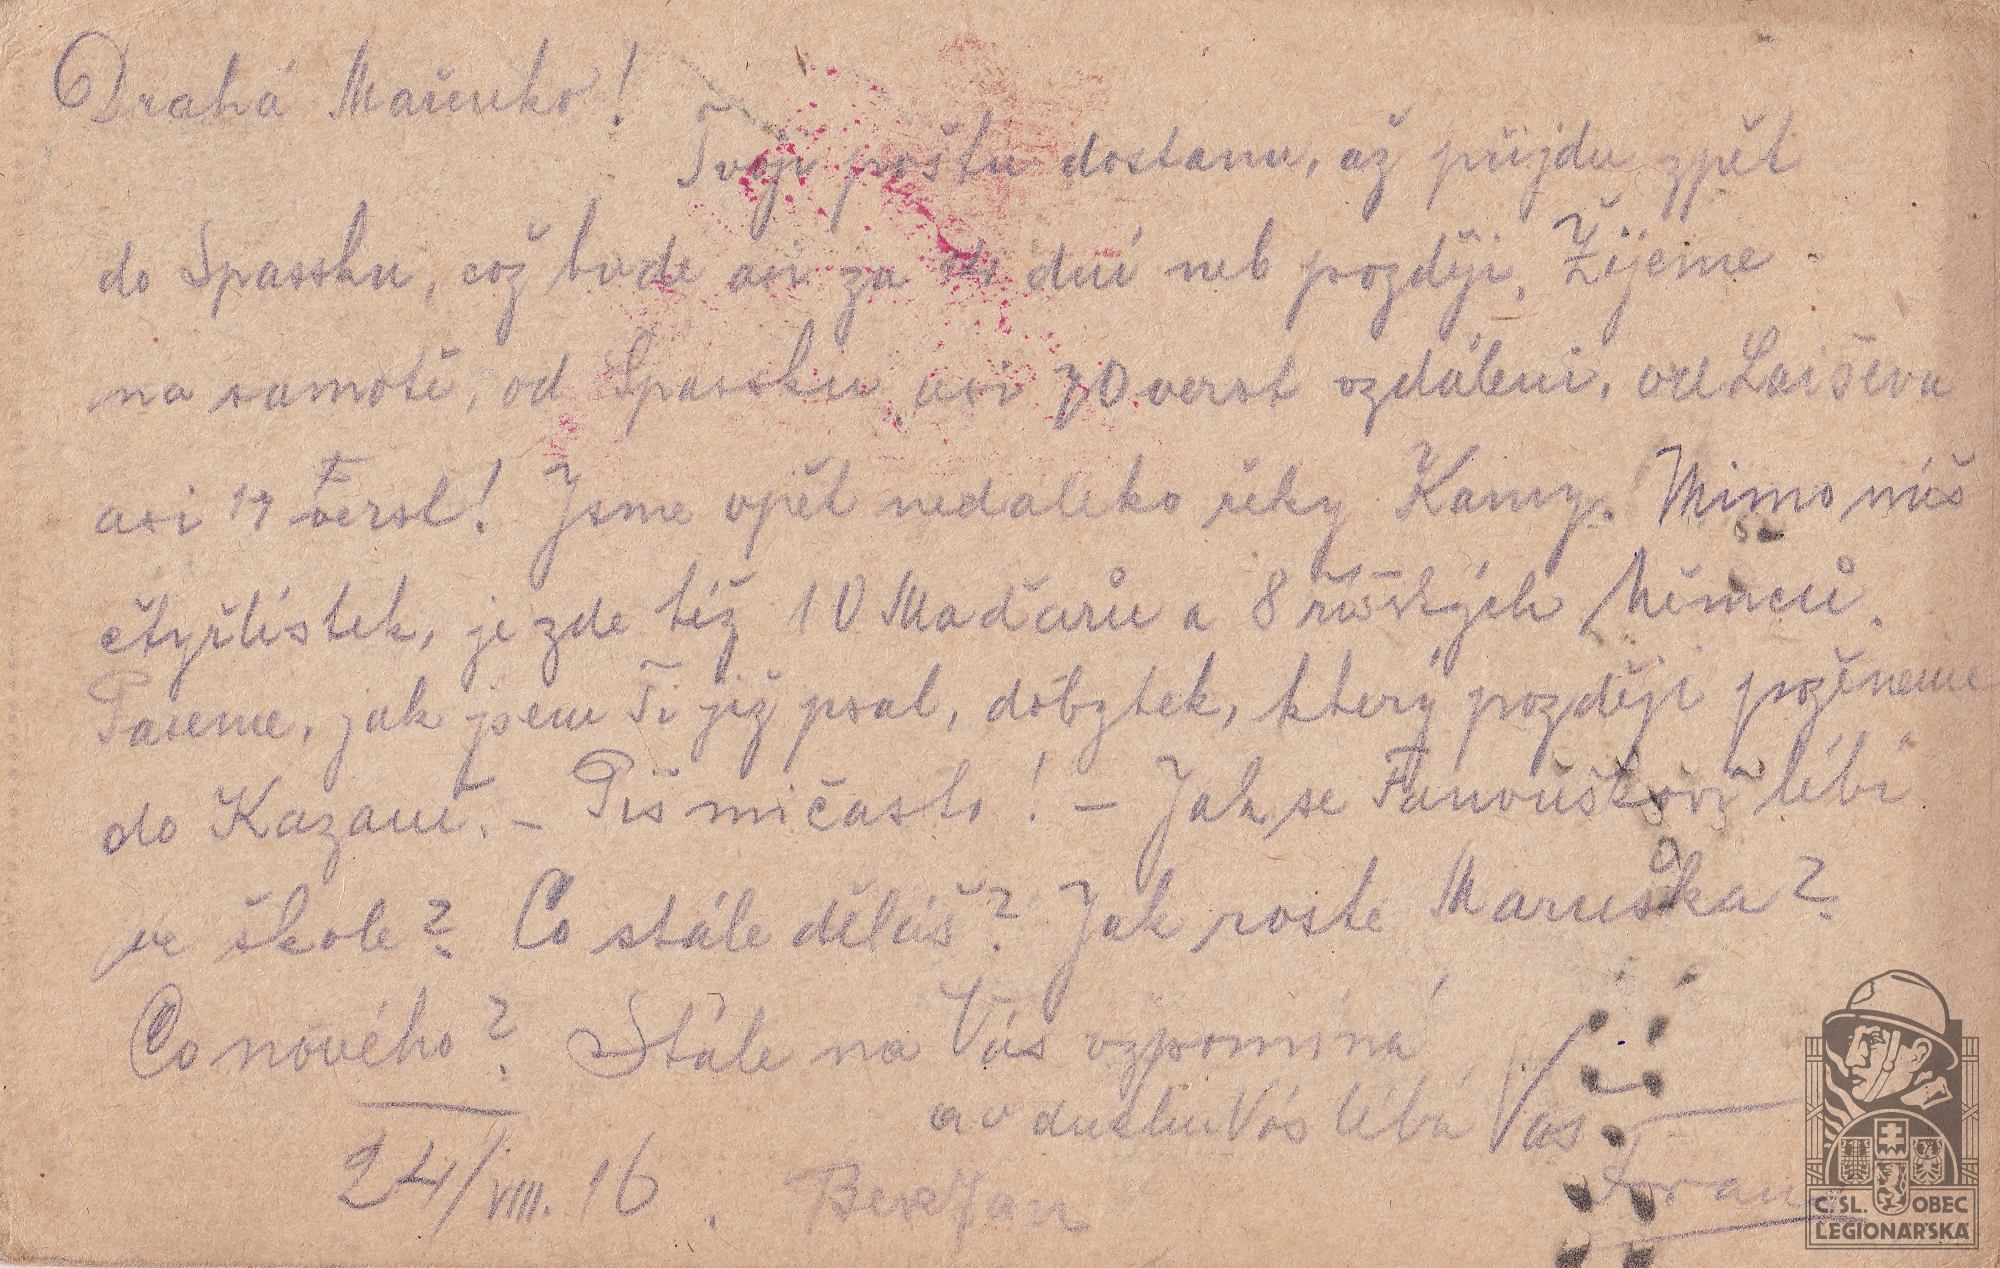 Drahá Mařenko!
Tvoji poštu dostanu, až přijdu zpět
do Spassku, což bude asi za dní neb později. Žijeme
na samotě, od Spassku asi 70 verst vzdáleni, od Laiševa
asi 17 verst! Jsme opět nedaleko řeky Kamy. Mimo náš
čtyřlístek, je zde též 10 Maďarů a 8 říšských Němců.
Paseme, jak jsem Ti již psal, dobytek, který později poženeme
do Kazaně. – Piš mi často! – Jak se Fanouškovi líbí
ve škole? Co stále děláš? Jak roste Maruška?
Co nového? Stále na Vás vzpomíná
a v duchu Vás líbá Váš
24/VIII. 16.
Č:SL. OBEC
LEGIONÁŘSKÁ